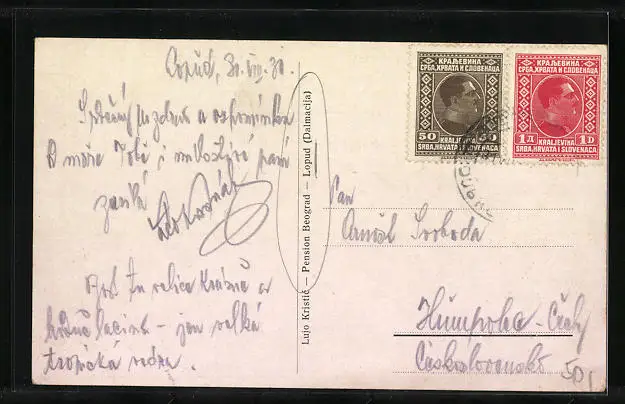 Lopud, 31.VII.30.
Srdečný pozdrav a vzpomínka
od moře Tobě i milostivé paní
zasílá
Jest tu velice krásně a
láčino - jen velká
tropická vedra.
Lujo Kristić — Pension Beograd — Lopud (Dalmacija)
КРАЉЕВИНА
СРБА, ХРВАТА И СЛОВЕНАЦА
50 50
KRALJEVINA
SRBA, HRVATA I SLOVENACA
КРАЉЕВИНА
СРБА, ХРВАТА И СЛОВЕНАЦА
1Д 1D
KRALJEVINA
SRBA, HRVATA I SLOVENACA
Pan
Arnošt Svoboda
Humpolec - Čechy
Československo
50